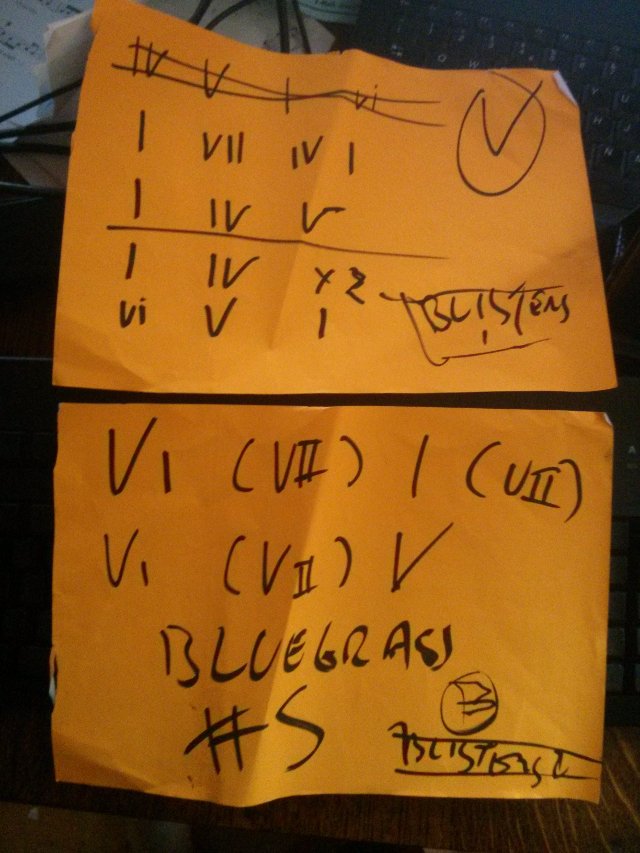 IV V I vi
V
I VII IV I
I IV V
I IV x2
vi V I
BLISTERS
1
VI (VII) I (VII)
VI (VII) V
BLUEGRASS
#S
B
BLISTERS 2